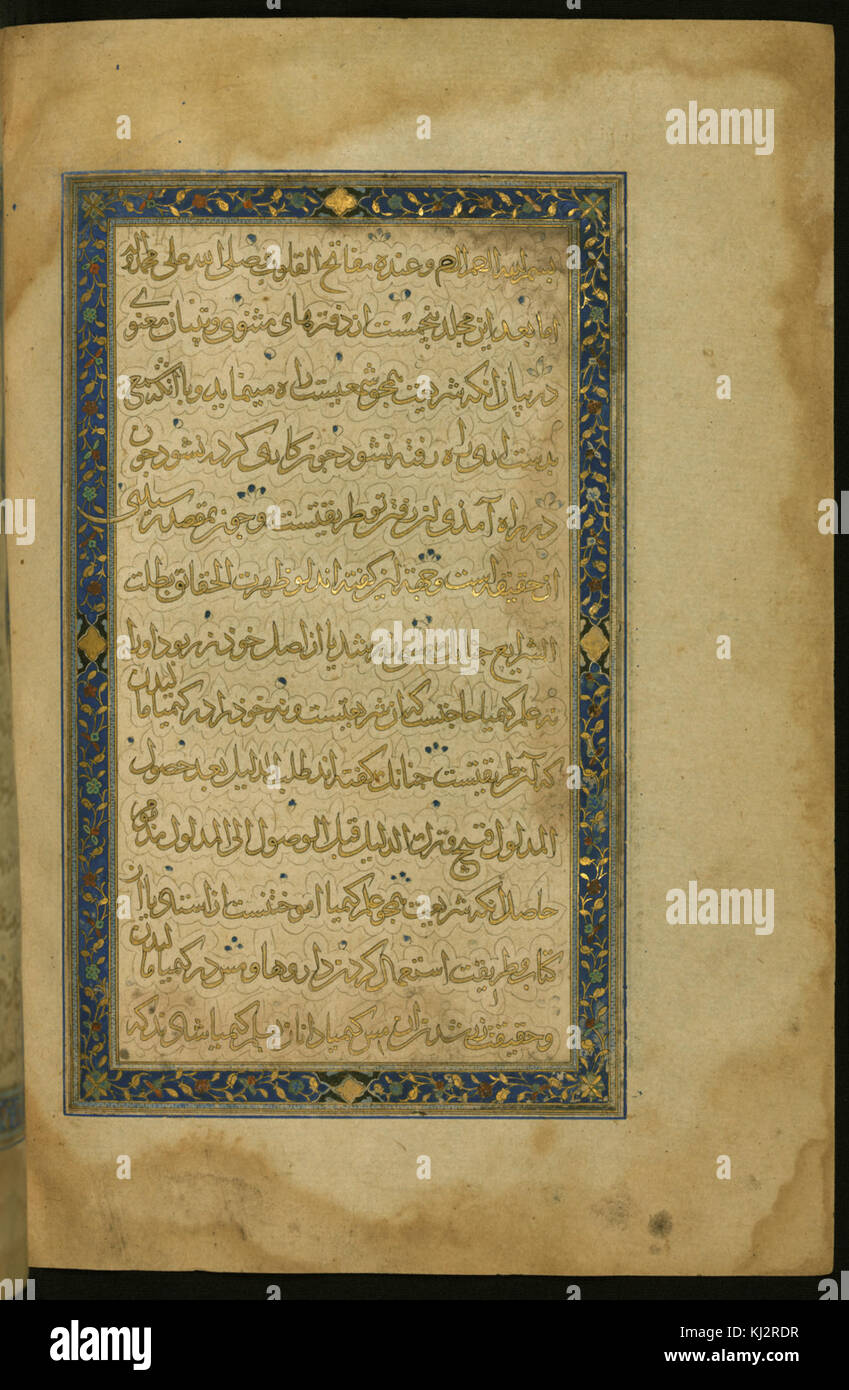 بسم الله الرحمن الرحیم وعنده مفاتح القلوب صلی الله علی محمد وآله
اما بعد این مجلد پنجمست از دفترهای مثنوی وتبیان معنوی
در بیان انکه شریعت همچو شمعیست راه مینماید وبا آنکه شمعی
بدست آری راه رفته نشود وچون کاری کرده نشود چون
در راه آمذی آن رفتن تو طریقتست وچون بمقصد رسیدی
ان حقیقتست وجهة این گفته اند لو ظهرت الحقائق بطلت
الشرایع شد یا از اصل خوذ زر بود اورا
نه علم کیمیا حاجتست که آن شریعتست ونه خوذ را در کیمیا مالیدن
که آن طریقتست چنانک گفته اند طلب الدلیل بعد حصول
المدلول قبیح وترک الدلیل قبل الوصول الی المدلول مذموم
حاصل انکه شریعت همچو علم کیمیا اموختنست از استاد یا از
کتاب وطریقت استعمال کردن داروها ومس در کیمیا مالیدن
وحقیقت زر شدن آن مس کیمیا دانان بعلم کیمیا شادند که
alamy
KJ2RDR
www.alamy.com